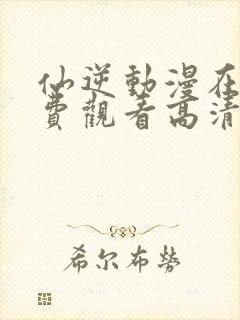 仙逆動漫在
費觀看高清
希尔布勞